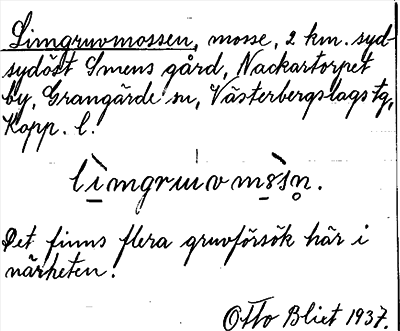 Limgruvmossen, mosse, 2 km. syd-
sydöst Smens gård, Nackartorpet
by, Grangärde sn, Västerbergslags tg,
Kopp. l.
lìmgruiv mòsn̥.
Det finns flera gruvförsök här i
närheten.
Otto Bliet 1937.